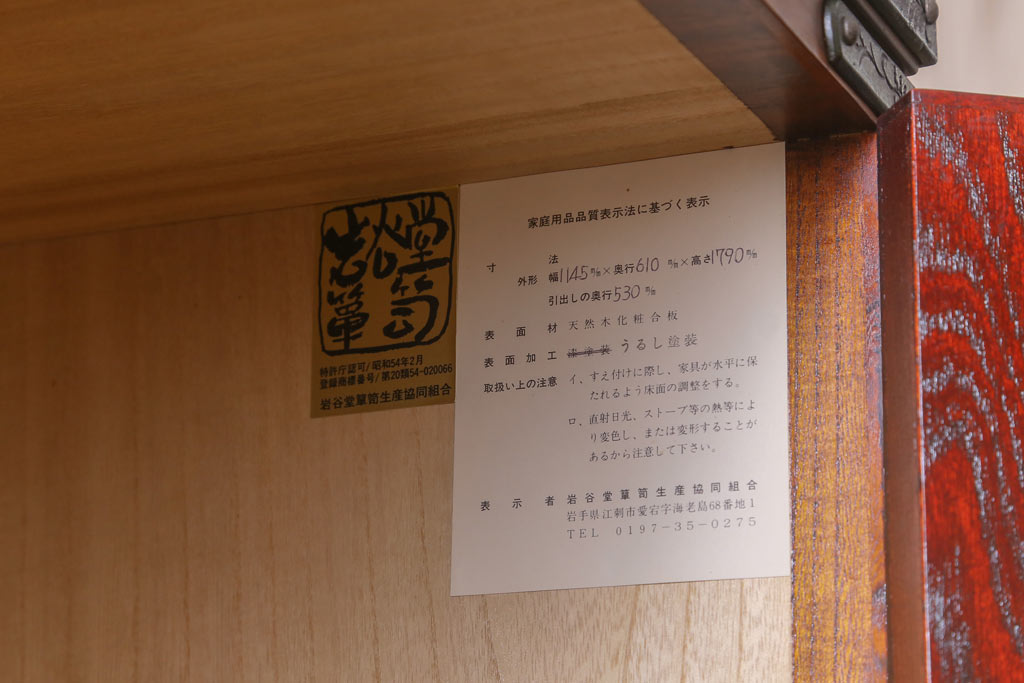 岩谷堂簞笥
特許庁認可/昭和54年2月
登録商標番号/第20類54-020066
岩谷堂簞笥生産協同組合
家庭用品品質表示法に基づく表示
寸法
外形 幅1145m/m×奥行610m/m×高さ1790m/m
引出しの奥行530m/m
表面材 天然木化粧合板
表面加工 漆塗装 うるし塗装
取扱い上の注意 イ、すえ付けに際し、家具が水平に保
たれるよう床面の調整をする。
ロ、直射日光、ストーブ等の熱等によ
り変色し、または変形することが
あるから注意して下さい。
表示者 岩谷堂簞笥生産協同組合
岩手県江刺市愛宕字海老島68番地1
TEL 0197-35-0275